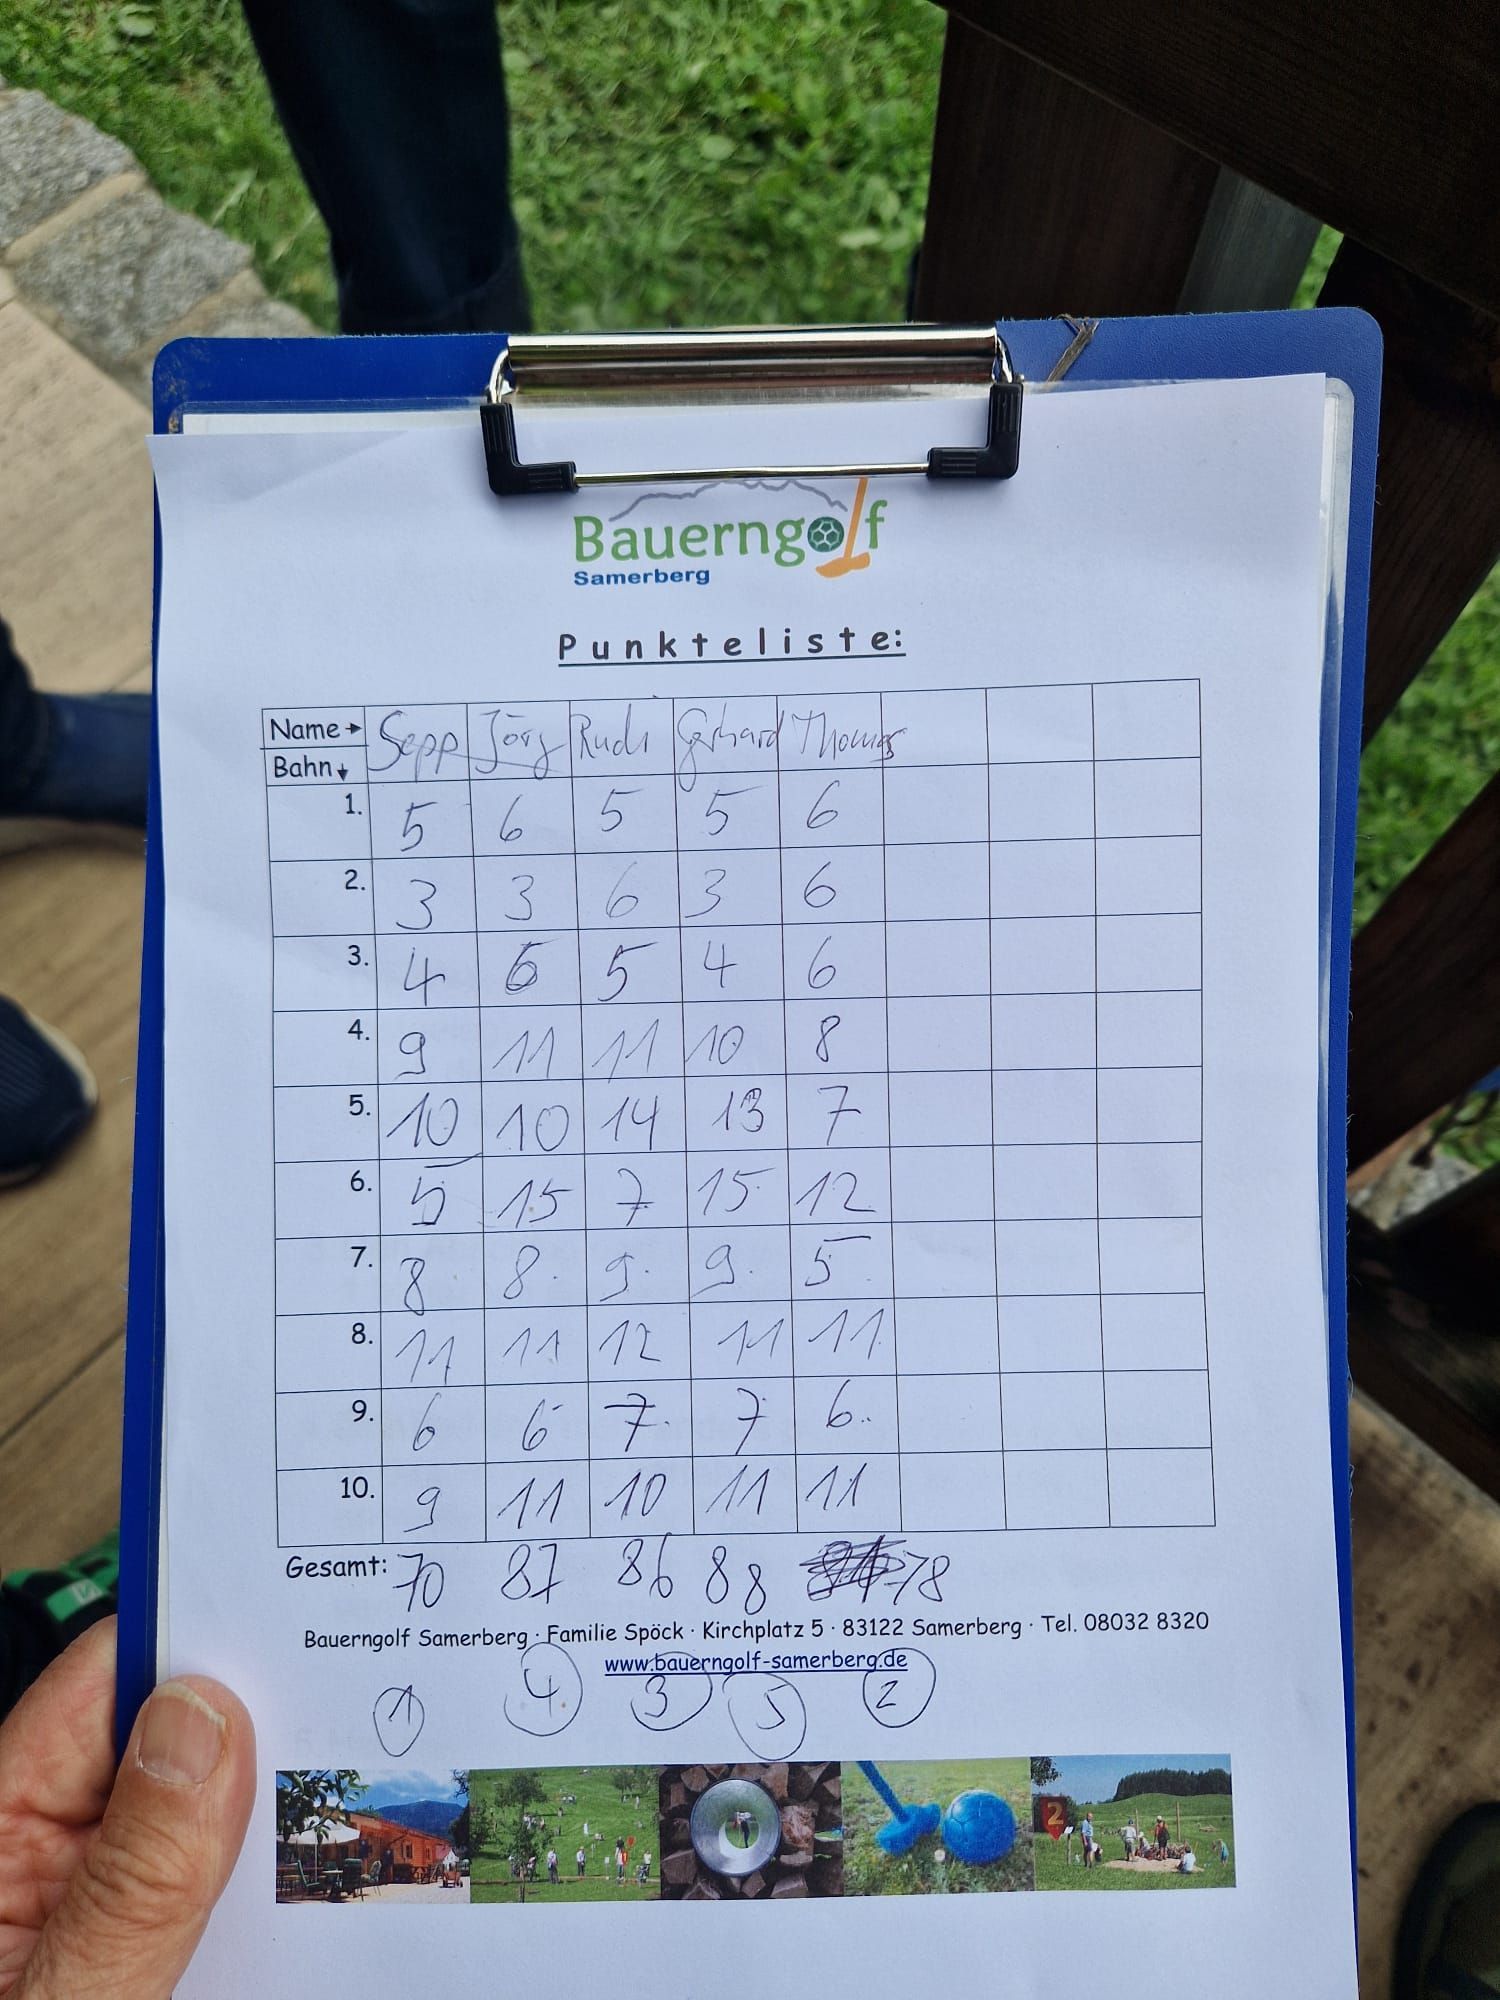 Bauerngolf
Samerberg
Punkteliste:
Name → Sepp Jörg Rudi Gerhard Thomas
Bahn ↓
1. 5 6 5 5 6
2. 3 3 6 3 6
3. 4 6 5 4 6
4. 9 11 11 10 8
5. 10 10 14 13 7
6. 5 15 7 15 12
7. 8 8 9 9 5
8. 11 11 12 11 11
9. 6 6 7 7 6
10. 9 11 10 11 11
Gesamt: 70 87 86 88 78
Bauerngolf Samerberg · Familie Spöck · Kirchplatz 5 · 83122 Samerberg · Tel. 08032 8320
www.bauerngolf-samerberg.de
1 4 3 5 2
2